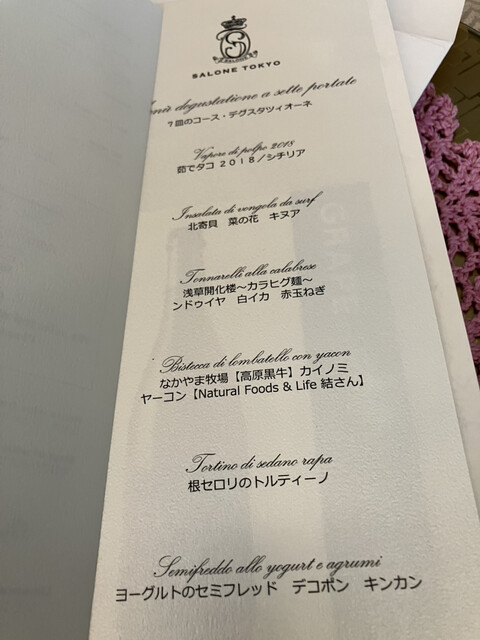 S
SALONE TOKYO
degustatione a sette portate
7皿のコース・デグスタツィオーネ
Vapore di polpo 2018
茹でタコ 2018/シチリア
Insalata di vongola da surf
北寄貝 菜の花 キヌア
Tonnarelli alla calabrese
浅草開化楼～カラヒグ麺～
ンドゥイヤ 白イカ 赤玉ねぎ
Bistecca di lombatello con yacon
なかやま牧場【高原黒牛】カイノミ
ヤーコン【Natural Foods & Life 結さん】
Tortino di sedano rapa
根セロリのトルティーノ
Semifreddo allo yogurt e agrumi
ヨーグルトのセミフレッド デコポン キンカン